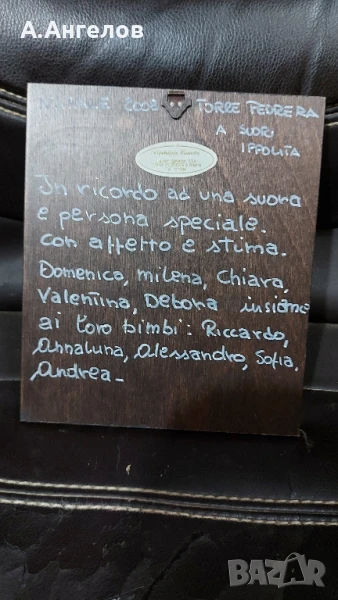 А.Ангелов
2002 TORRE PEDRERA
A SUOR
IPPOLITA
In ricordo ad una suora
e persona speciale.
con affetto e stima.
Domenica, milena, Chiara,
Valentina, Debora insieme
ai loro bimbi: Riccardo,
Annaluna, Alessandro, Sofia,
Andrea-
BAZAR